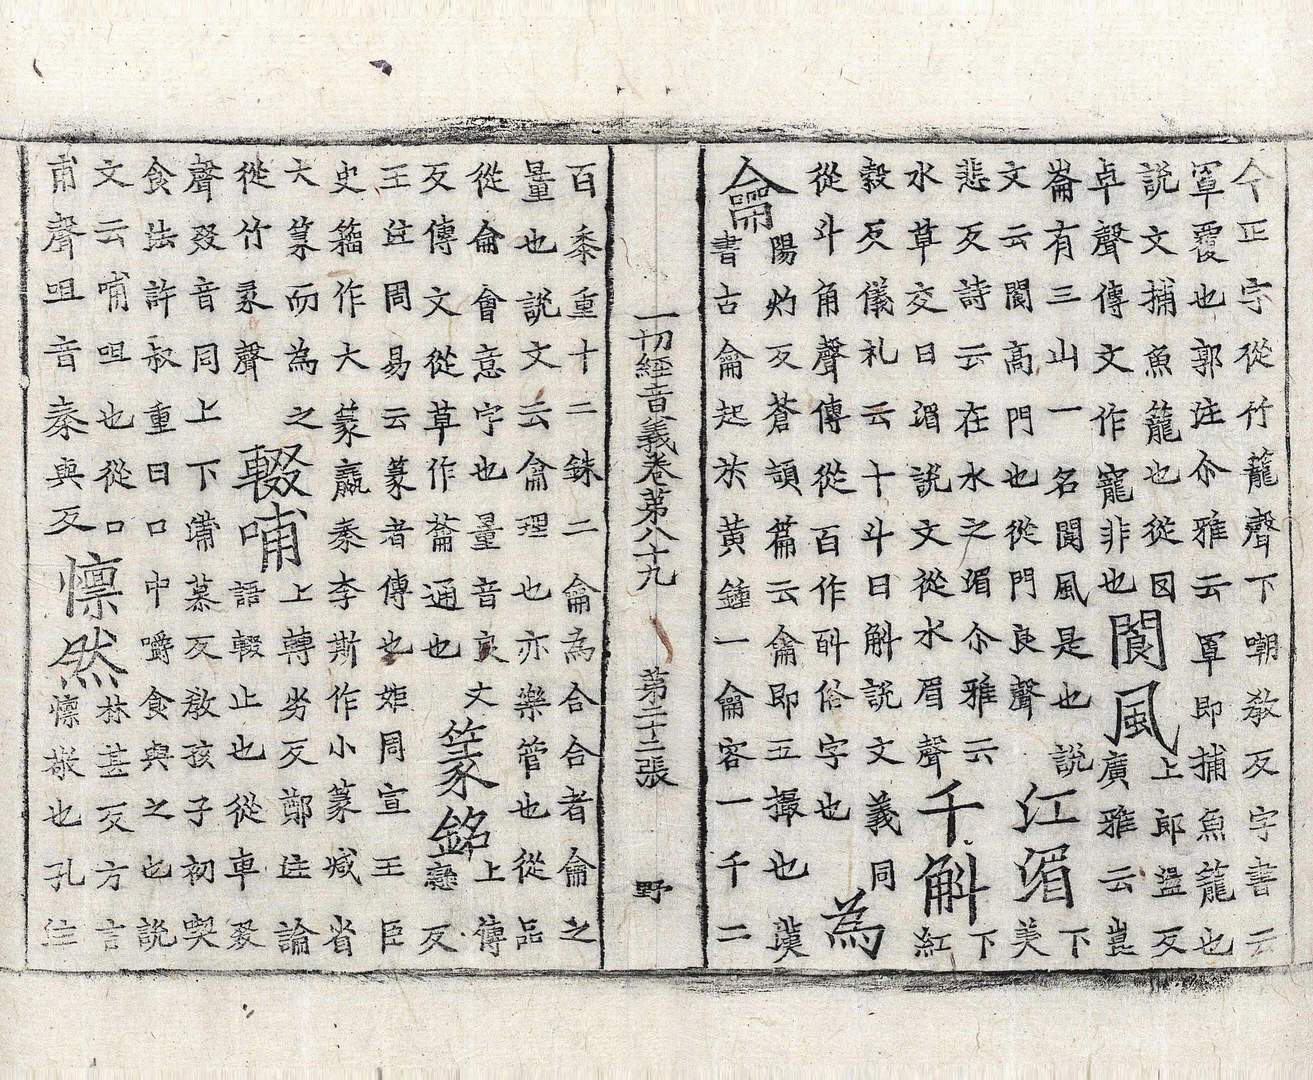 今正字從竹籠聲下嘲敎反字書云
罩覆也郭注尒雅云罩即捕魚籠也
說文捕魚籠也從囡
卓聲傳文作寵非也
閬風
上郎盪反
廣雅云崑
崙有三山一名閬風是也說
文云閬高門也從門良聲
江湄
下
美
悲反詩云在水之湄尒雅云
水草交曰湄說文從水眉聲
千斛
下
紅
穀反儀礼云十斗曰斛說文義同
從斗角聲傳從百作㪶俗字也
為
龠
陽灼反蒼頡篇云龠即五撮也漢
書古龠起於黃鍾一龠容一千二
一切經音義卷第八十九 第二十二張 野
百黍重十二銖二龠為合合者龠之
量也說文云龠理也亦樂管也從品
從侖會意字也量音良丈
反傳文從草作蘥通也
篆銘
上傳
戀反
王注周易云篆者傳也姙周宣王臣
史籀作大篆嬴秦李斯作小篆減省
大篆而為之
從竹彖聲
輟哺
上轉劣反鄭注論
語輟止也從車叕
聲叕音同上下蒲慕反敎孩子初喫
食法許叔重曰口中嚼食與之也說
文云哺咀也從口
甫聲咀音秦與反
懍然
林甚反方言
懍敬也孔注